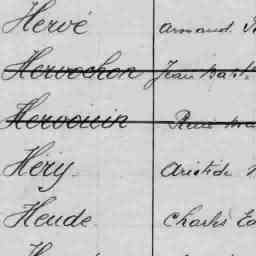 Hervé Armand
Hervochon Jean Bapt.
Hervouin René
Héry Aristide
Heude Charles